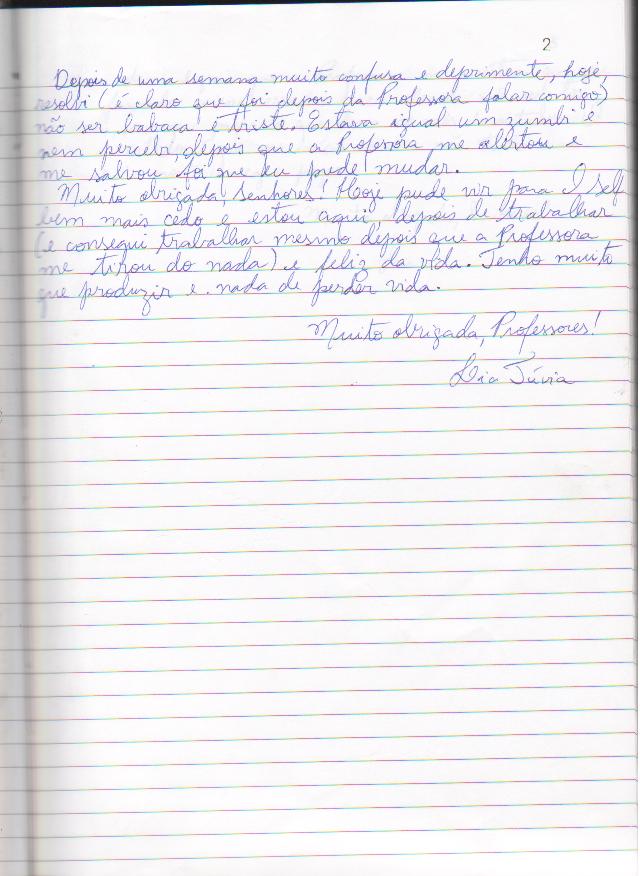 2
Depois de uma semana muito confusa e deprimente, hoje,
resolvi (é claro que foi depois da Professora falar comigo)
não ser babaca e triste. Estava igual um zumbi e
nem percebi, depois que a Professora me alertou e
me salvou foi que eu pude mudar.
Muito obrigada, senhores! Hoje pude vir para I Self
bem mais cedo e estou aqui, depois de trabalhar
(e consegui trabalhar mesmo depois que a Professora
me tirou do nada) e feliz da vida. Tenho muito
que produzir e nada de perder vida.
Muito obrigada, Professores!
Lia Túvia